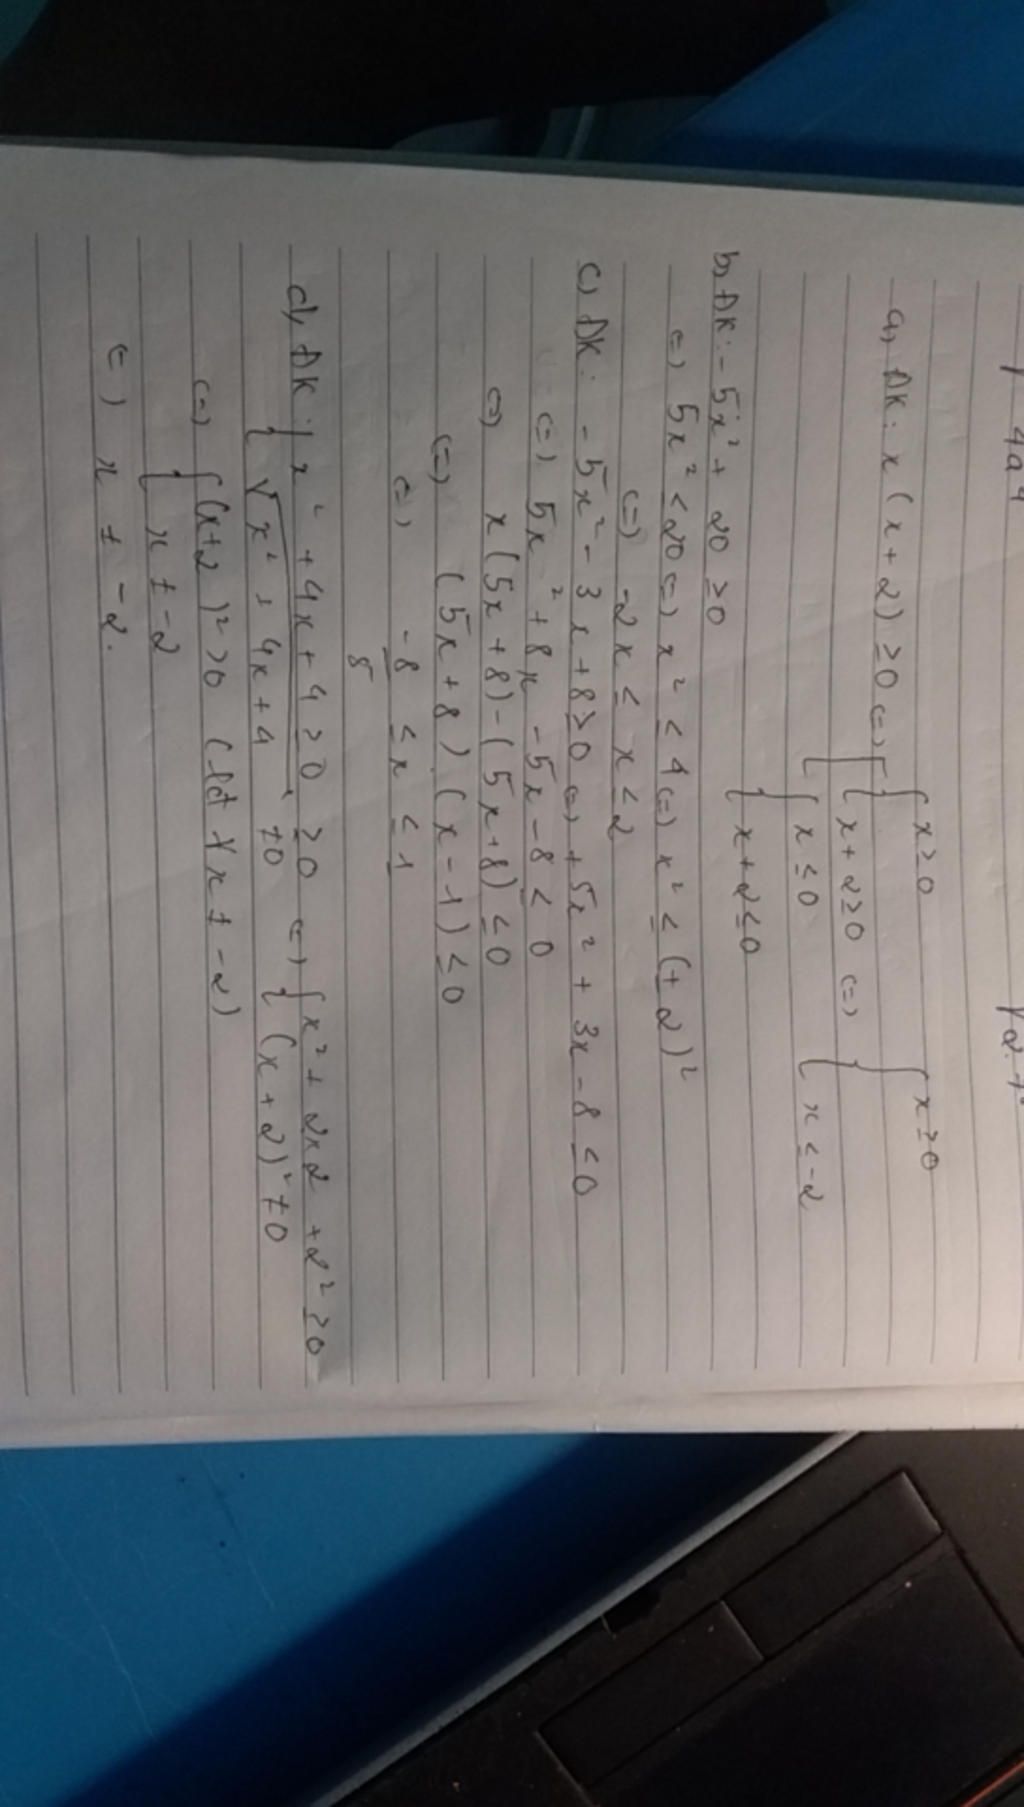 4a⁴
a, ĐK: x(x+2) ≥ 0 <=> [ { x ≥ 0
{ x+2 ≥ 0 <=> { x ≥ 0
{ x ≤ 0 { x ≤ -2
{ x+2 ≤ 0
b, ĐK: -5x² + 20 ≥ 0
<=> 5x² ≤ 20 <=> x² ≤ 4 <=> x² ≤ (± 2)²
<=> -2 x ≤ x ≤ 2
c, ĐK: -5x² - 3x + 8 ≥ 0 <=> +5x² + 3x - 8 ≤ 0
<=> 5x² + 8x - 5x - 8 ≤ 0
<=> x(5x+8) - (5x+8) ≤ 0
<=> (5x+8)(x-1) ≤ 0
<=> -8/5 ≤ x ≤ 1
d, ĐK: { x² + 4x + 4 ≥ 0 ≥ 0 <=> { x² + 2x2 + 2² ≥ 0
{ √x² + 4x + 4 ≠ 0 { (x+2)² ≠ 0
<=> { (x+2)² > 0 ( ∀x ≠ -2)
{ x ≠ -2
<=> x ≠ -2.